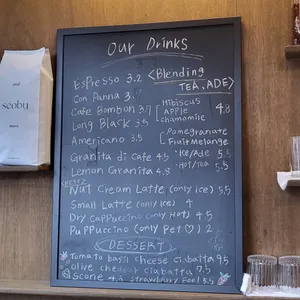 Our Drinks
Espresso 3.2
Con Panna 3.
Cafe Bombon 3.7
Long Black 3.5
Americano 3.5
Granita di Cafe 4.5
Lemon Granita 4.8
<Blending
TEA, ADE>
Hibiscus
Apple 4.8
chamomile
Pomegranate
Fruit Melange
• Ice/Ade 5.5
• Hot/tea 5.5
Nut Cream Latte (only ice) 5.5
Small Latte (only ice) 4
Dry Cappuccino (only Hot) 4.5
Puppuccino (only Pet ♡) 2
<DESSERT>
Tomato bassi cheese ciabatta 9.5
olive cheddar ciabatta 7.5
Scone 4.3 Strawberry 5.5
seobu